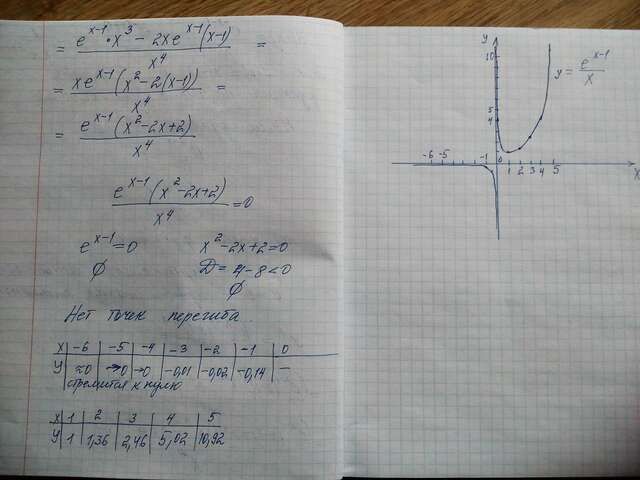 = (e^(x-1)·x³ - 2xe^(x-1)(x-1))/x⁴ =
= (xe^(x-1)(x²-2(x-1)))/x⁴ =
= (e^(x-1)(x²-2x+2))/x⁴
(e^(x-1)(x²-2x+2))/x⁴ = 0
e^(x-1)=0 x²-2x+2=0
∅ D=4-8<0
∅
Нет точек перегиба.
x | -6 | -5 | -4 | -3 | -2 | -1 | 0
y | ≈0 | →0 | →0 | -0,01 | -0,02 | -0,14 | —
стремится к нулю
x | 1 | 2 | 3 | 4 | 5
y | 1 | 1,36 | 2,46 | 5,02 | 10,92
y
10
y = e^(x-1)/x
5
4
-6 -5 -1 0 1 2 3 4 5 x